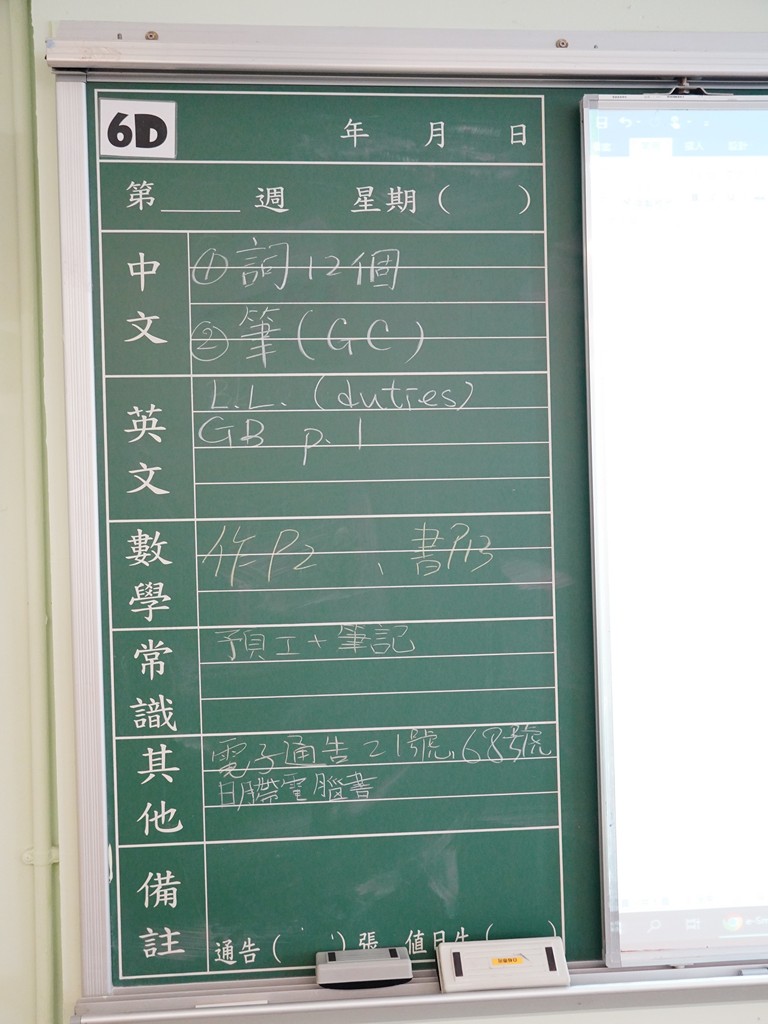 6D
年 月 日
第____週 星期( )
中文
①詞12個
②筆(GC)
英文
L.L. (duties)
GB p.1
數學
作P2 、書P13
常識
預工+筆記
其他
電子通告21號,68號
明帶電腦書
備註
通告( )張 值日生( )